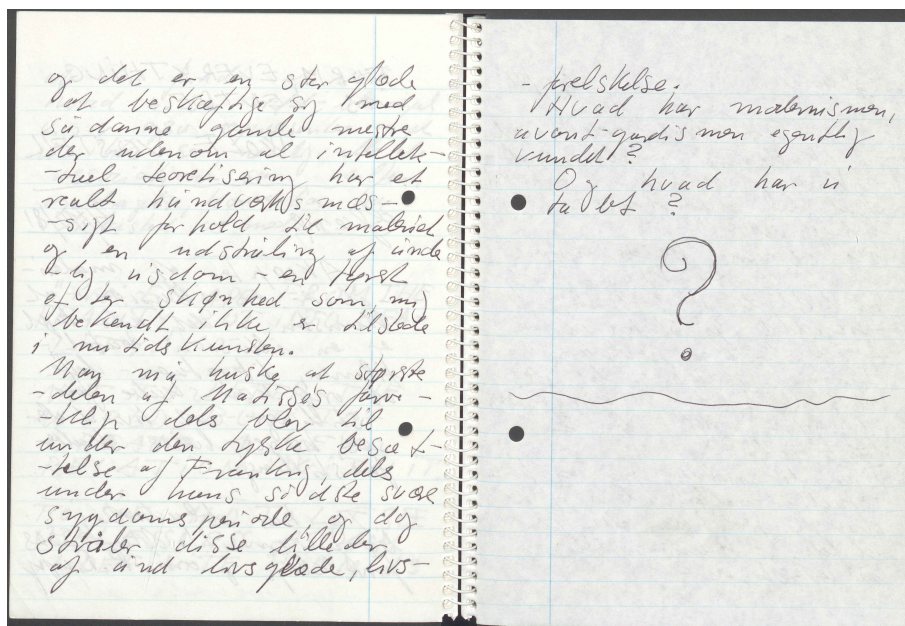 og det er en stor glæde
at beskæftige sig med
sådanne gamle mestre
der udenom al intellek-
-tuel teoretisering har et
realt håndværksmæs-
-sigt forhold til materialet
og en udstråling af ånde
-lig visdom - en tørst
efter skønhed som, mig
bekendt ikke er tilstede
i nutidskunsten.
Man må huske at største
-delen af Matisses farve-
-klip dels blev til
under den tyske besæt-
-telse af Frankrig, dels
under hans sidste svære
sygdomsperiode, og dog
stråler disse billeder
af ånd livsglæde, livs-
- forelskelse.
Hvad har modernismen,
avant-gardismen egentlig
vundet?
Og hvad har vi
tabt?
?